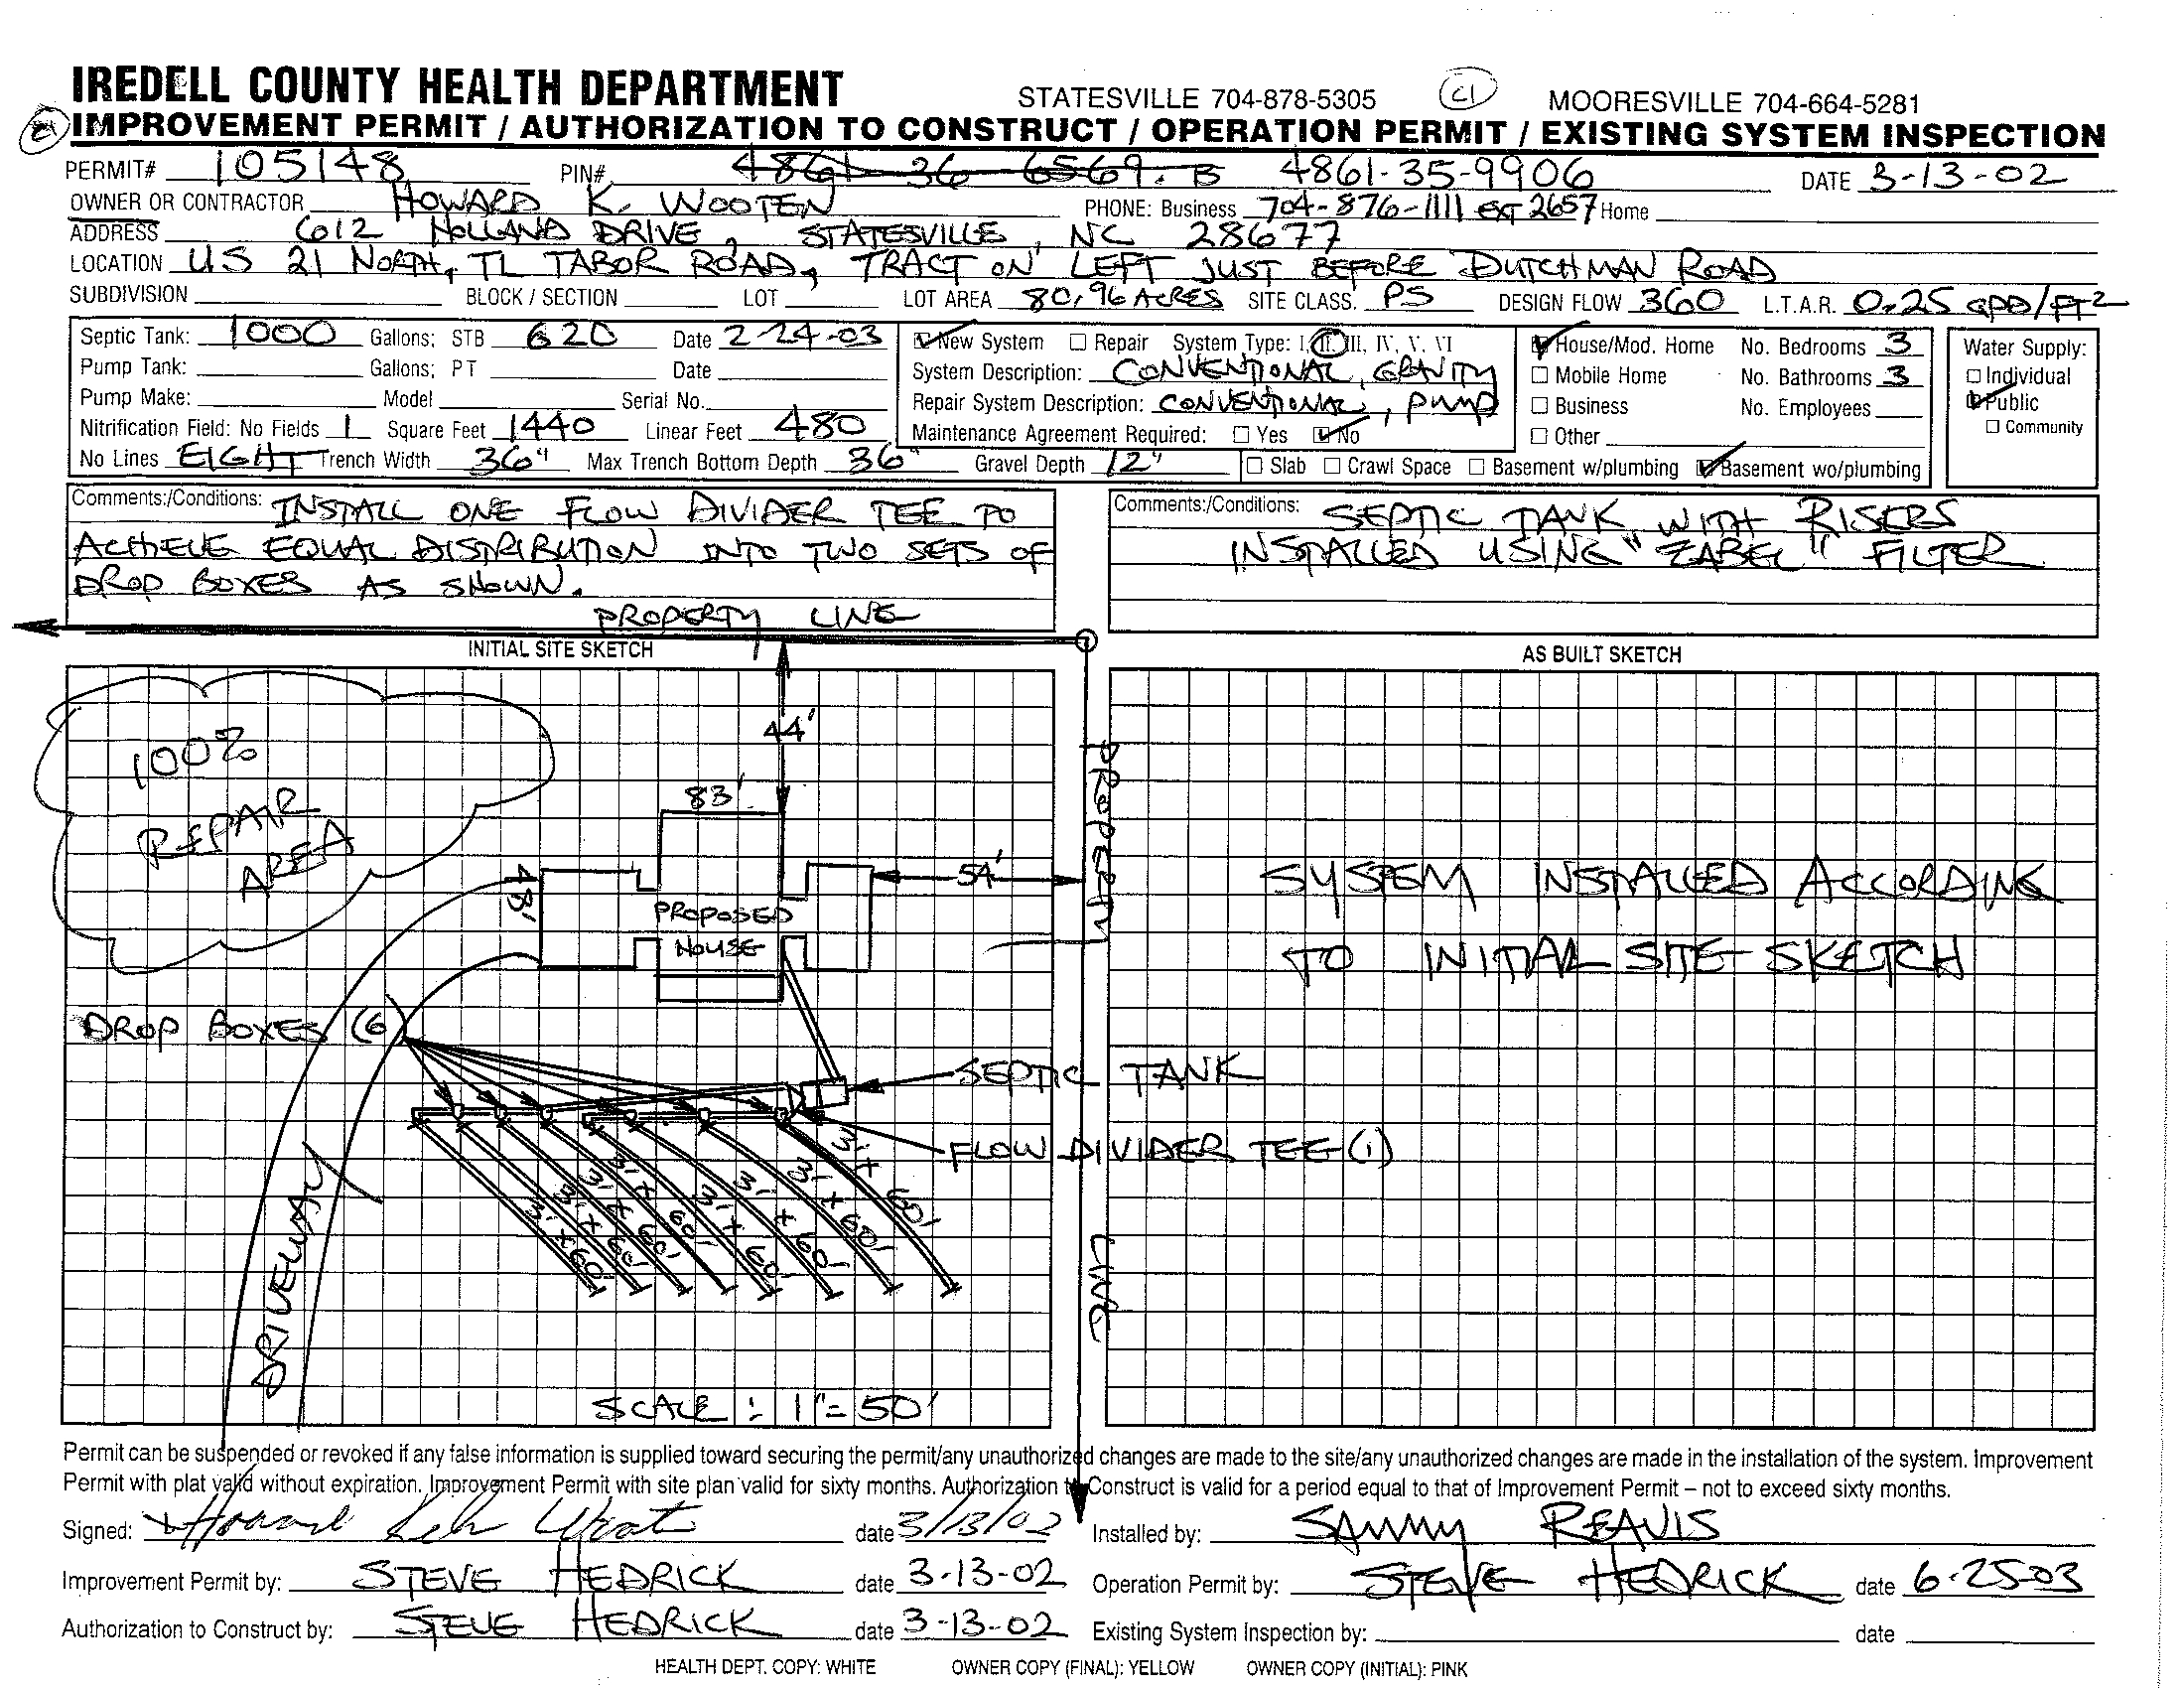 IREDELL COUNTY HEALTH DEPARTMENT STATESVILLE 704-878-5305 C1 MOORESVILLE 704-664-5281
IMPROVEMENT PERMIT / AUTHORIZATION TO CONSTRUCT / OPERATION PERMIT / EXISTING SYSTEM INSPECTION
PERMIT# 105148 PIN# 4861-36-6569.B 4861-35-9906 DATE 3-13-02
OWNER OR CONTRACTOR HOWARD K. WOOTEN PHONE: Business 704-876-1111 ext 2657 Home
ADDRESS 612 HOLLAND DRIVE, STATESVILLE, NC 28677
LOCATION US 21 NORTH, TL TABOR ROAD, TRACT ON LEFT JUST BEFORE DUTCHMAN ROAD
SUBDIVISION BLOCK / SECTION LOT LOT AREA 80.96 ACRES SITE CLASS. PS DESIGN FLOW 360 L.T.A.R. 0.25 GPD/FT2
Septic Tank: 1000 Gallons; STB 620 Date 2-24-03
Pump Tank: Gallons; PT Date
Pump Make: Model Serial No.
Nitrification Field: No Fields 1 Square Feet 1440 Linear Feet 480
No Lines EIGHT Trench Width 36" Max Trench Bottom Depth 36" Gravel Depth 12"
New System Repair System Type: I, II, III, IV, V, VI
System Description: CONVENTIONAL, GRAVITY
Repair System Description: CONVENTIONAL, PUMP
Maintenance Agreement Required: Yes No
House/Mod. Home No. Bedrooms 3
Mobile Home No. Bathrooms 3
Business No. Employees
Other
Slab Crawl Space Basement w/plumbing Basement wo/plumbing
Water Supply:
Individual
Public
Community
Comments:/Conditions: INSTALL ONE FLOW DIVIDER TEE TO
ACHIEVE EQUAL DISTRIBUTION INTO TWO SETS OF
DROP BOXES AS SHOWN.
Comments:/Conditions: SEPTIC TANK WITH RISERS
INSTALLED USING "ZABEL" FILTER
PROPERTY LINE
INITIAL SITE SKETCH
AS BUILT SKETCH
100%
REPAIR
AREA
44'
83'
54'
48'
PROPOSED
HOUSE
PROPERTY
LINE
SYSTEM INSTALLED ACCORDING
TO INITIAL SITE SKETCH
DROP BOXES (6)
SEPTIC TANK
FLOW DIVIDER TEE (1)
3' x 60'
3' x 60'
3' x 60'
3' x 60'
3' x 60'
3' x 60'
3' x 60'
DRIVEWAY
SCALE: 1"=50'
Permit can be suspended or revoked if any false information is supplied toward securing the permit/any unauthorized changes are made to the site/any unauthorized changes are made in the installation of the system. Improvement
Permit with plat valid without expiration. Improvement Permit with site plan valid for sixty months. Authorization to Construct is valid for a period equal to that of Improvement Permit – not to exceed sixty months.
Signed: date 3/13/02 Installed by: SAMMY REAVIS
Improvement Permit by: STEVE HEDRICK date 3-13-02 Operation Permit by: STEVE HEDRICK date 6-25-03
Authorization to Construct by: STEVE HEDRICK date 3-13-02 Existing System Inspection by: date
HEALTH DEPT. COPY: WHITE OWNER COPY (FINAL): YELLOW OWNER COPY (INITIAL): PINK